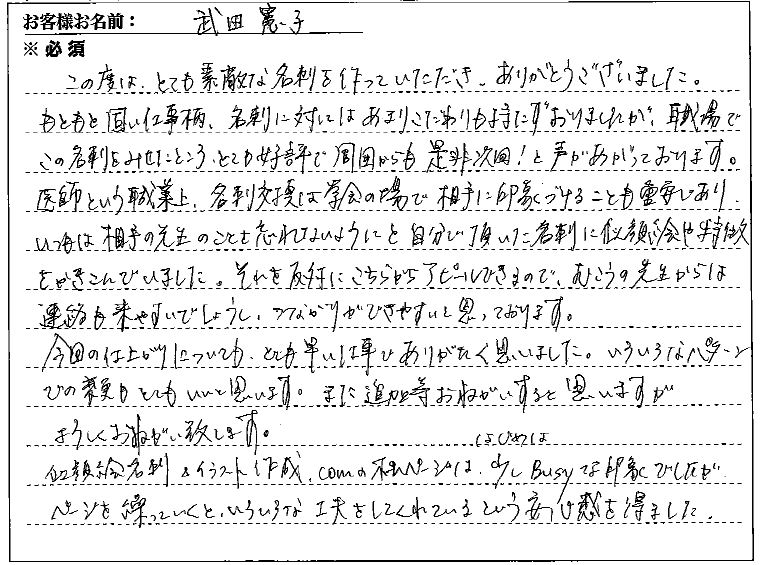 お客様お名前： 武田 憲子
※必須
この度は、とても素敵な名刺を作っていただき、ありがとうございました。
もともと固い仕事柄、名刺に対してはあまりこだわりも持たずおりましたが、職場で
この名刺をみせたところ、とても好評で周囲からも是非次回！と声があがっております。
医師という職業上、名刺交換は学会の場で相手に印象づけることも重要であり
いつもは相手の先生のことを忘れないようにと自分で頂いた名刺に似顔絵や特徴
をかきこんでいました。それを反対にこちらからアピールできるので、むこうの先生からは
連絡も来やすいでしょうし、つながりができやすいと思っております。
今回の仕上がりについても、とても早い仕事でありがたく思いました。いろいろなパターン
での変更もとてもいいと思います。また追加等おねがいすると思いますが
よろしくおねがい致します。
はじめは
似顔絵名刺&イラスト作成.comのホームページは、少しBusyな印象でしたが
ページを繰っていくと、いろいろな工夫をしてくれているという安心感を得ました.